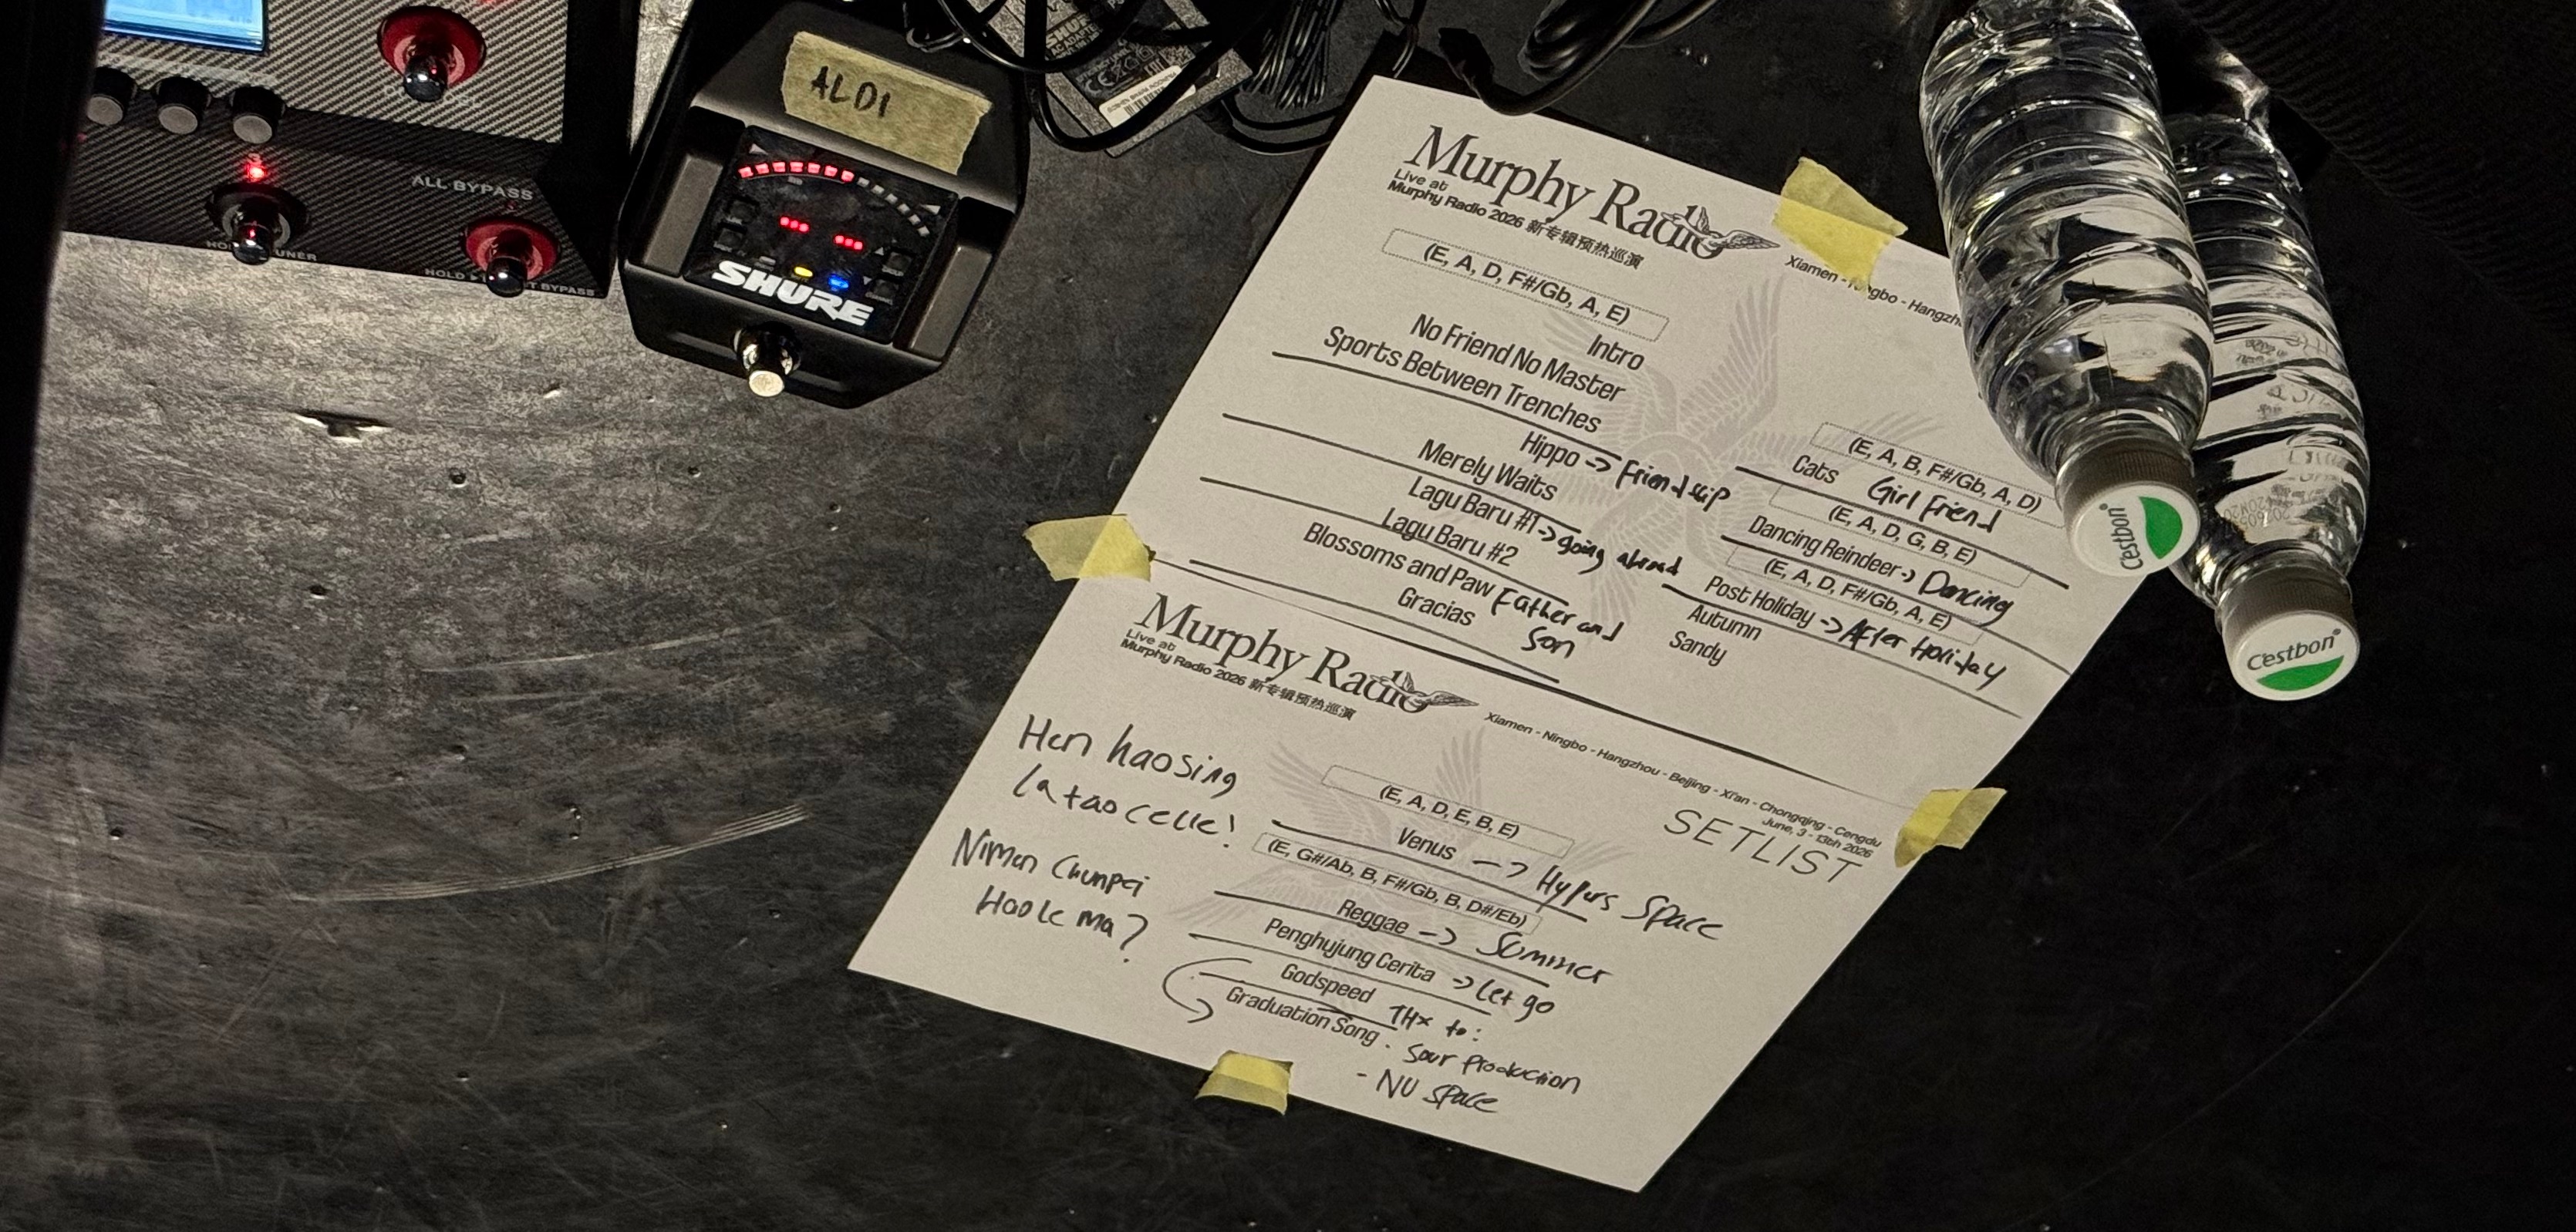 ALL BYPASS
HOLD
BYPASS
ALDI
SHURE
SHURE
AC ADAPTER
Murphy Radio
Live at
Murphy Radio 2026 新专辑预热巡演
Xiamen - Ningbo - Hangzh
(E, A, D, F#/Gb, A, E)
Intro
No Friend No Master
Sports Between Trenches
Hippo -> Friendscip
Merely Waits
Lagu Baru #1 -> going ahead
Lagu Baru #2
Blossoms and Paw Father and Son
Gracias
(E, A, B, F#/Gb, A, D)
Cats Girl Friend
(E, A, D, G, B, E)
Dancing Reindeer -> Dancing
(E, A, D, F#/Gb, A, E)
Post Holiday -> After Holiday
Autumn
Sandy
Murphy Radio
Live at
Murphy Radio 2026 新专辑预热巡演
Xiamen - Ningbo - Hangzhou - Beijing - Xi'an - Chongqing - Cengdu
June, 3 - 13th 2026
SETLIST
Hen haosing
la tao celle!
Nimen Chunpei
Haole ma?
(E, A, D, E, B, E)
Venus -> Hypers Space
(E, G#/Ab, B, F#/Gb, B, D#/Eb)
Reggae -> Sommer
Penghujung Cerita -> Let go
Godspeed
Graduation Song
THX to:
- Sour Production
- NU SPACE
C'estbon
C'estbon